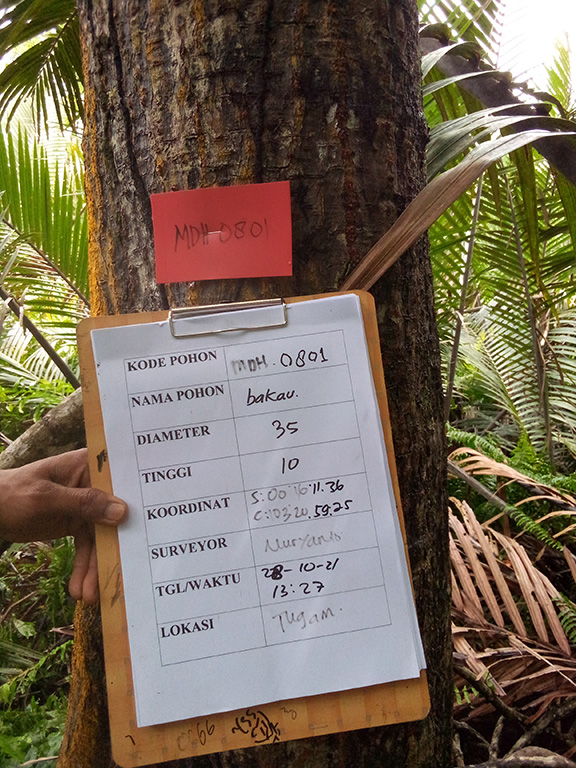 MDH-0801
KODE POHON MDH. 0801
NAMA POHON bakau.
DIAMETER 35
TINGGI 10
KOORDINAT S:00:16:11.36
C:103:20.59.25
SURVEYOR Nuryanis
TGL/WAKTU 28-10-21
13:27
LOKASI Tugam.